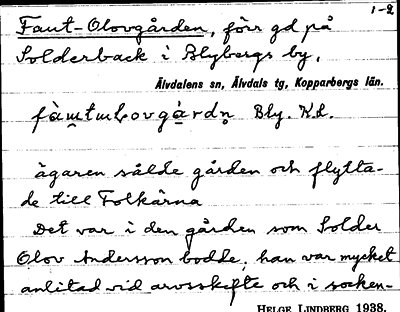 1-2
Faut-Olovgården, förr gd på
Solderback i Blybergs by,
Älvdalens sn, Älvdals tg, Kopparbergs län.
Bly. K.L.
ägaren sålde gården och flytta-
de till Folkärna
Det var i den gården som Solder
Olov Andersson bodde, han var mycket
anlitad vid arvsskifte och i socken-
HELGE LINDBERG 1938.